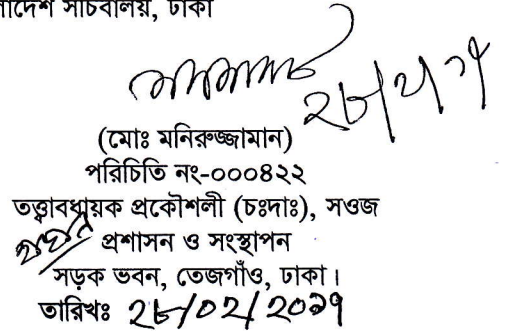 লাদেশ সচিবালয়, ঢাকা
২৮/২/১৭
(মোঃ মনিরুজ্জামান)
পরিচিতি নং-০০০৪২২
তত্ত্বাবধায়ক প্রকৌশলী (চঃদাঃ), সওজ
প্রশাসন ও সংস্থাপন
সড়ক ভবন, তেজগাঁও, ঢাকা।
তারিখঃ ২৮/০২/২০১৭